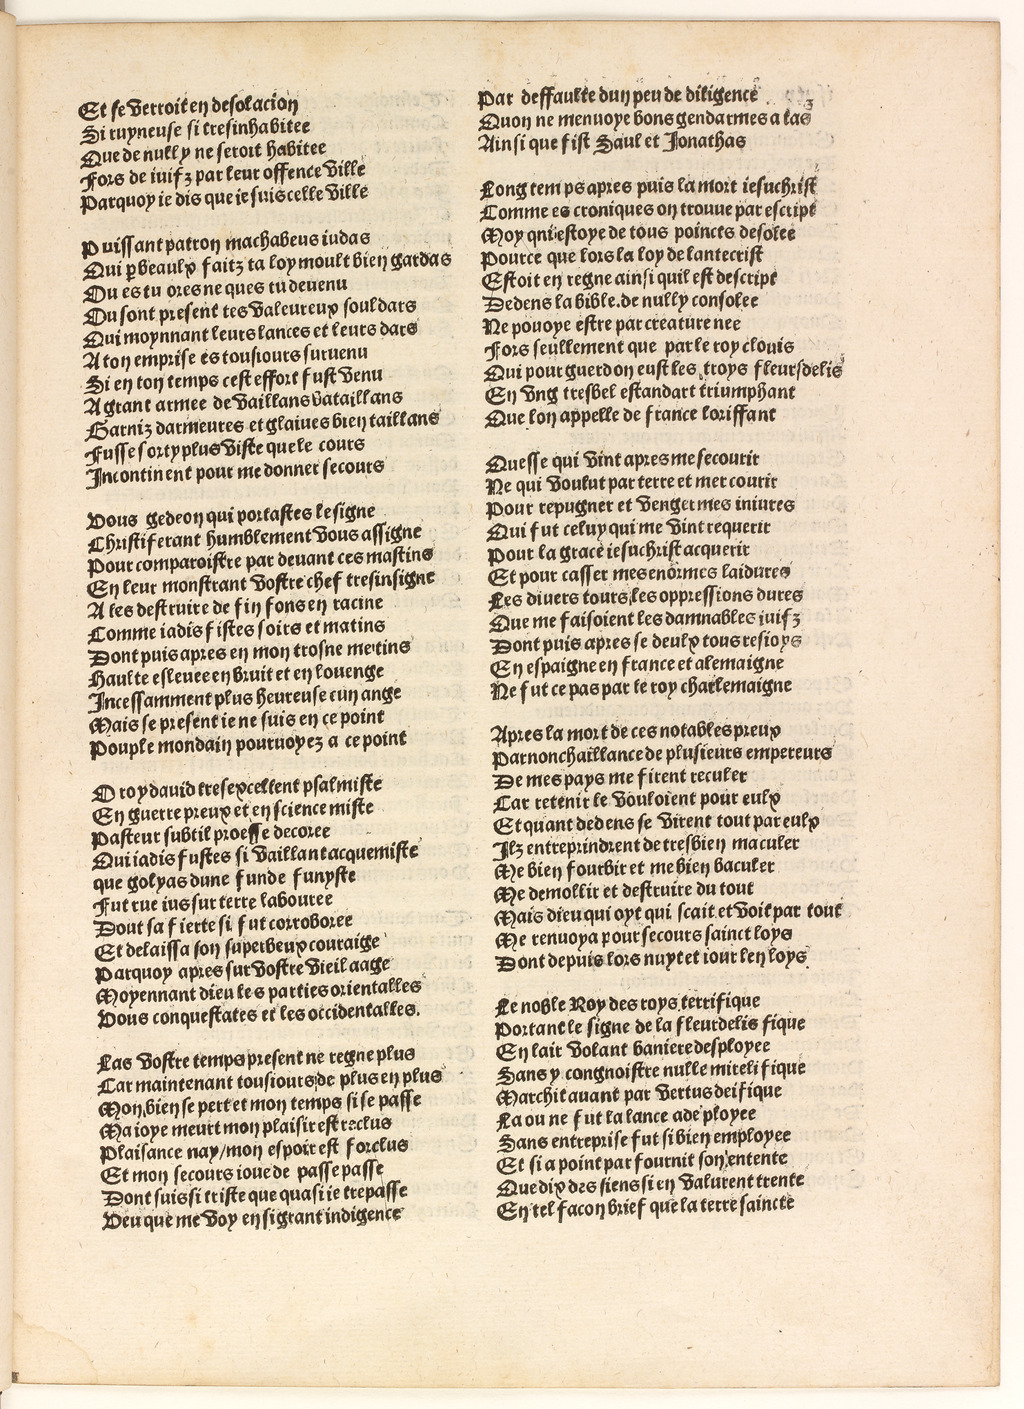 Et se verroit en desolacion
Si ruyneuse si tresinhabitee
Que de nully ne seroit habitee
Fors de iuifz par leur offence ville
Parquoy ie dis que ie suis celle ville

Puissant patron machabeus iudas
Qui p beaulx faitz ta loy moult bien gardas
Ou es tu ores ne ques tu deuenu
Ou sont present tes valeureux souldars
Qui moynnant leurs lances et leurs dars
A ton emprise es tousiours suruenu
Si en ton temps cest effort fust venu
A grant armee de vaillans bataillans
Garniz darmeures et glaiues bien taillans
Fusse sorty plus viste que le cours
Incontinent pour me donner secours

Vous gedeon qui portastes le signe
Christiferant humblement vous assigne
Pour comparoistre par deuant ces mastins
En leur monstrant vostre chef tresinsigne
A les destruire de fin fons en racine
Comme iadis fistes soirs et matins
Dont puis apres en mon trosne metins
Haulte esleuee en bruit et en louenge
Incessamment plus heureuse cun ange
Mais se present ie ne suis en ce point
Pouple mondain pouruoyez a ce point

O roy dauid tresexcellent psalmiste
En guerre preux et en science miste
Pasteur subtil proesse decoree
Qui iadis fustes si vaillant acquemiste
que golyas dune funde funyste
Fut rue ius sur terre labouree
Dout sa fierte si fut corroboree
Et delaissa son superbeux couraige
Parquoy apres sur vostre vieil aage
Moyennant dieu les parties orientalles
Vous conquestates et les occidentalles.

Las vostre temps present ne regne plus
Car maintenant tousiours de plus en plus
Mon bien se pert et mon temps si se passe
Ma ioye meurt mon plaisir est reclus
Plaisance nay/mon espoir est forclus
Et mon secours ioue de passe passe
Dont suis si triste que quasi ie trepasse
Veu que me voy en si grant indigence
Par deffaulte dun peu de diligence
Quon ne menuoye bons gendarmes a las
Ainsi que fist Saul et Jonathas

Long temps apres puis la mort iesuchrist
Comme es croniques on trouue par escript
Moy qni estoye de tous poincts desolee
Pource que lors la loy de lantecrist
Estoit en regne ainsi quil est descript
Dedens la bible.de nully consolee
Ne pouoye estre par creature nee
Fors seullement que par le roy clouis
Qui pour guerdon eust les troys fleursdelis
En vng tresbel estandart triumphant
Que lon appelle de france loriffant

Quesse qui vint apres me secourir
Ne qui voulut par terre et mer courir
Pour repugner et venger mes iniures
Qui fut celuy qui me vint requerir
Pour la grace iesuchrist acquerir
Et pour casser mes enormes laidures
Les diuers tours les oppressions dures
Que me faisoient les damnables iuifz
Dont puis apres se deulx tous resioys
En espaigne en france et alemaigne
Ne fut ce pas par le roy charlemaigne

Apres la mort de ces notables preux
Par nonchaillance de plusieurs empereurs
De mes pays me firent reculer
Car retenir le vouloient pour eulx
Et quant dedens se virent tout par eulx
Ilz entreprindrent de tresbien maculer
Me bien fourbir et me bien baculer
Me demollir et destruire du tout
Mais dieu qui oyt qui scait et voit par tout
Me renuoya pour secours sainct loys
Dont depuis lors nuyt et iour len loys.

Le noble Roy des roys terrifique
Portant le signe de la fleurdelis fique
En lair volant baniere desployee
Sans y congnoistre nulle mirelifique
Marchit auant par vertus deifique
La ou ne fut la lance adeployee
Sans entreprise fut si bien employee
Et si a point par fournit son entente
Que dix des siens si en valurent trente
En tel facon brief que la terre saincte